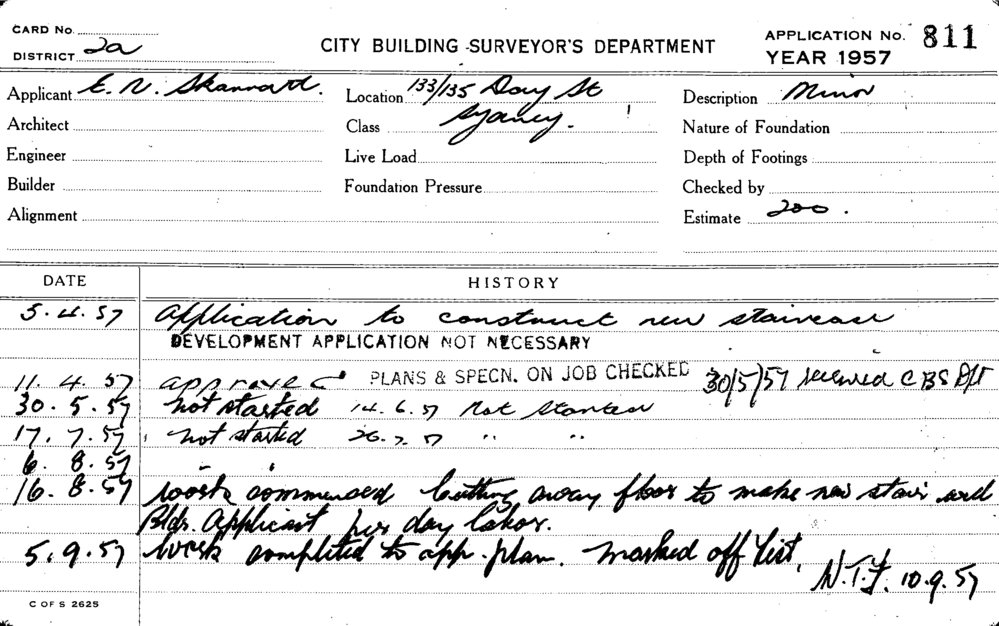 CARD No.
DISTRICT 2a
CITY BUILDING SURVEYOR'S DEPARTMENT
APPLICATION No. 811
YEAR 1957
Applicant E. N.
Location 133/135 Day St
Sydney.
Description Minor
Architect
Class
Nature of Foundation
Engineer
Live Load
Depth of Footings
Builder
Foundation Pressure
Checked by
Alignment
Estimate 200.
DATE HISTORY
5.4.57 Application to construct new staircase
DEVELOPMENT APPLICATION NOT NECESSARY
11.4.57 approved PLANS & SPECN. ON JOB CHECKED 30/5/57 received CBS
30.5.57 not started 14.6.57 Not Started
17.7.57 not started 26.7.57 " "
6.8.57 " "
16.8.57 work commenced cutting away floor to make new stair well
Bldr. Applicant per day labor.
5.9.57 work completed to app. plan. Marked off list.
N.T.F. 10.9.57
C OF S 2625